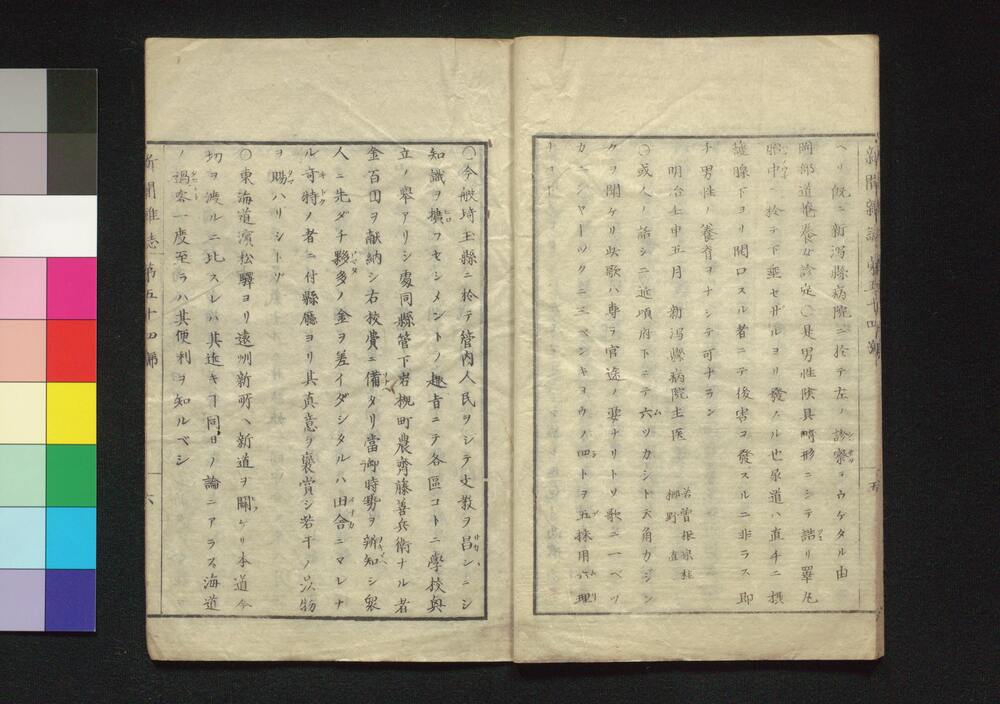 新聞雑誌 第五十四號 五
ヘリ既ニ新瀉縣病院ニ於テ左ノ診察ヲウケタル由
岡部道 養女診定〇是男性陰具畸形ニシテ 睾丸
中ニ於テ下垂セザルヨリ發スル也尿道ハ直チニ攝
護腺下ヨリ開口スル者ニテ後害ヲ發スルニ非ラス即
チ男性ノ養育ヲナシテ可ナラン
明治壬申五月 新瀉縣病院主医
〇或人ノ話シニ近頃府下ニテ六ツカシト六角カシン
ケヲ開ケリ 歌ハ專ラ官途ノ要ナリトソ歌ニ一ベツ
カニシヤーツクニ三ベンキヨウノ四トヲ五採用六理
〇今般埼玉縣ニ於テ管内人民ヲシテ文敎ヲ昌ンニシ
知識ヲ擴フセシメントノ趣旨ニテ各區コトニ學校興
立ノ擧アリシ處同縣管下岩槻町農齊藤善兵衛ナル者
金百円ヲ献納シ右校費ニ備タリ當御時勢ヲ辨知シ衆
人ニ先ダチ夥多ノ金ヲ差イダシタルハ田舎ニマレナ
ル奇特ノ者ニ付縣廳ヨリ其真意ヲ褒賞シ若干ノ品物
ヲ賜ハリシトゾ
〇東海道濱松驛ヨリ遠州新所ヘ新道ヲ開ケリ本道今
切ヲ渡ルニ比スレハ其遠キヿ同日ノ論ニアラス海道
ノ過客一度至ラハ其便利ヲ知ルベシ
新聞雑誌 第五十四號 六